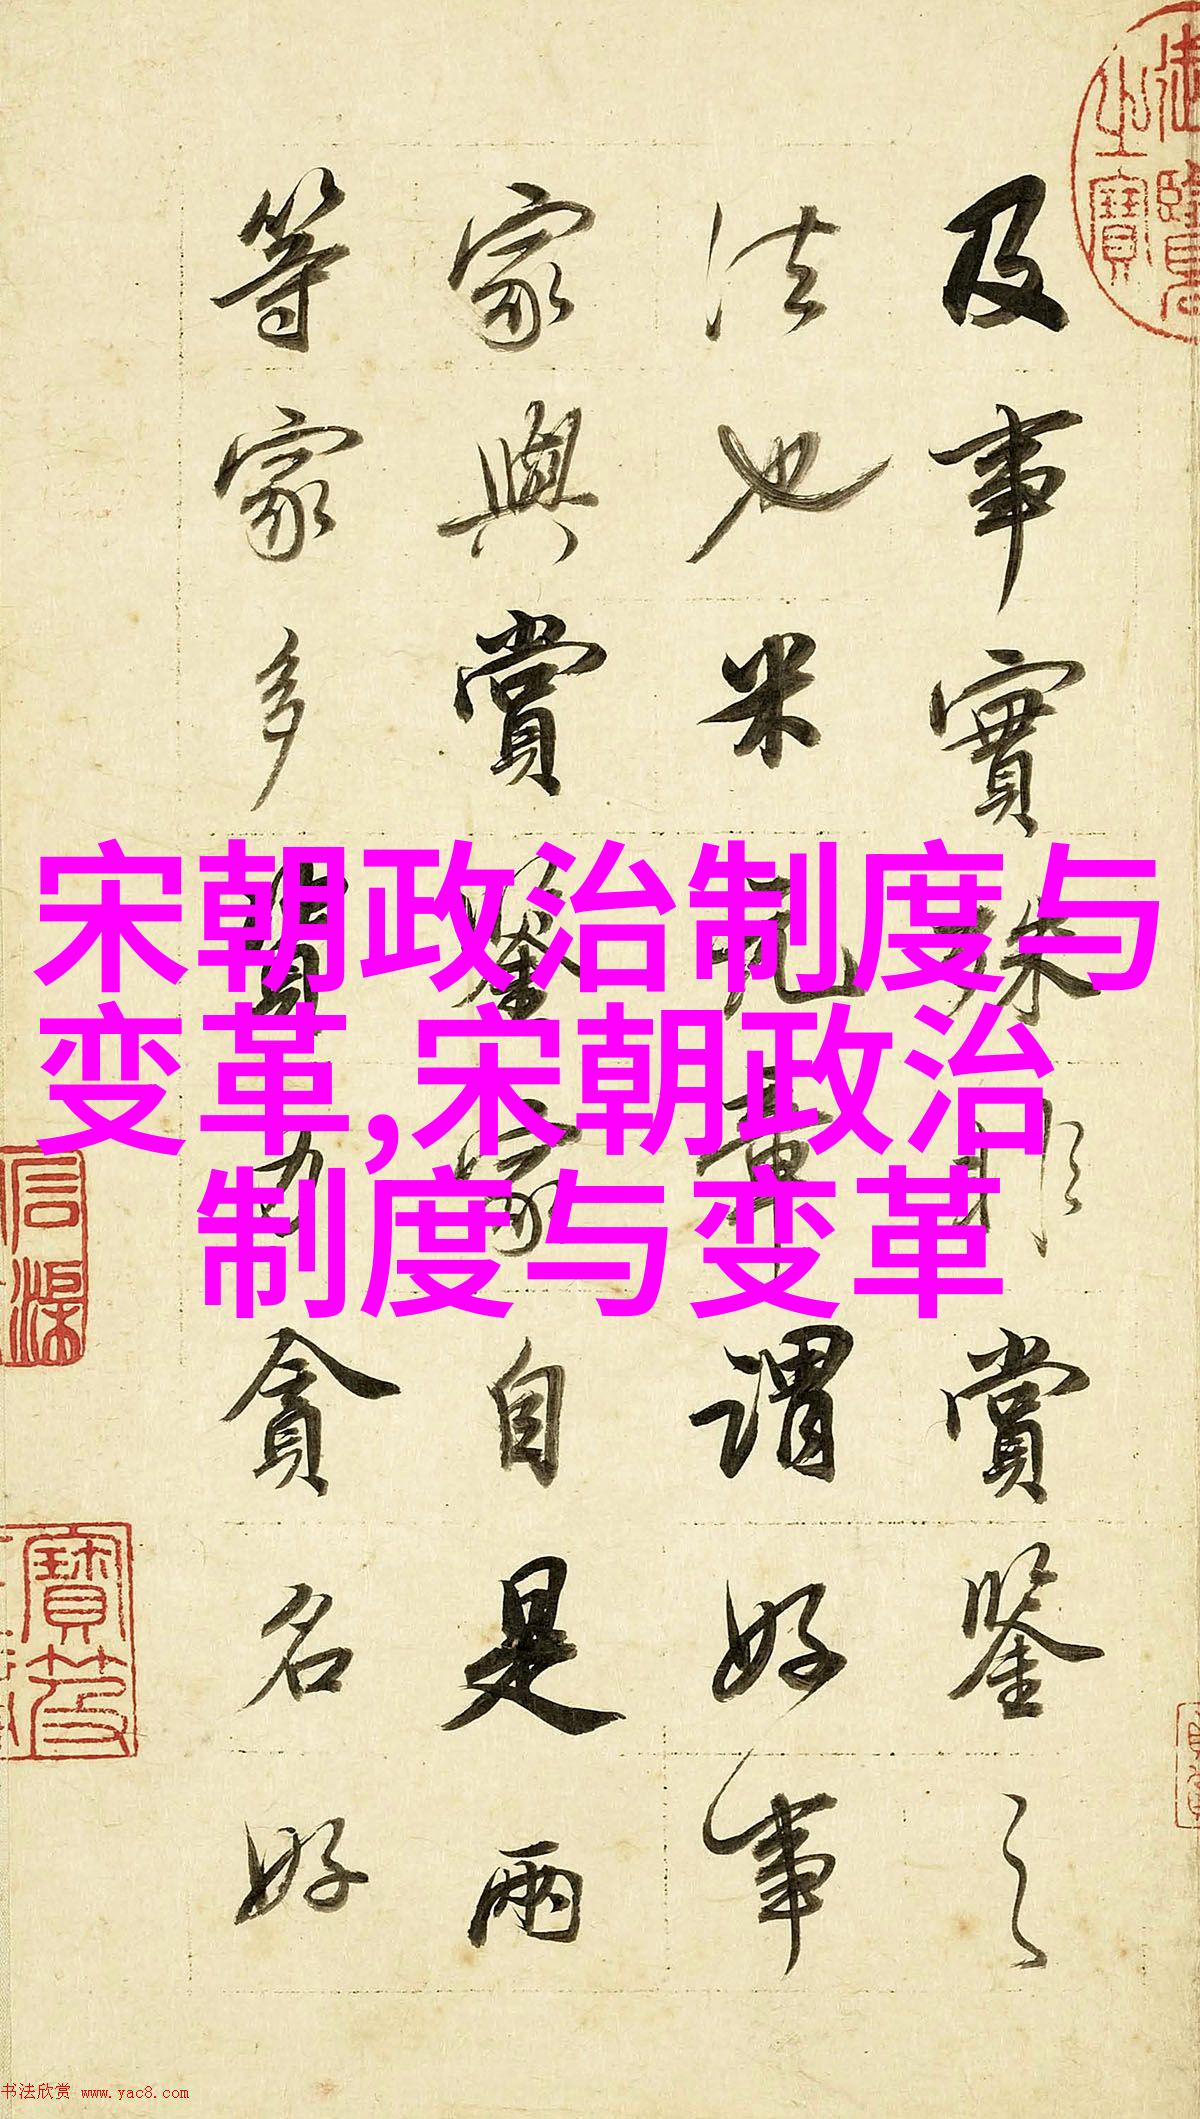 及事實殊非賞鑒之
法也米元章謂好事
家與賞鑒家自是兩
等家多資力貪名好
宋朝政治制度与
变革,宋朝政治
制度与变革
書法欣赏 www.yac8.com